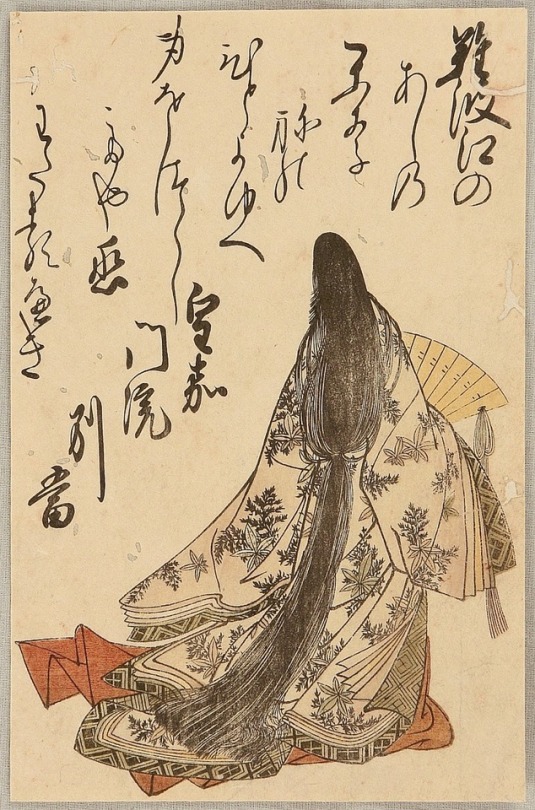 難波江の
あしの
かり
ねの
ひとよゆへ
身をつくし
てや恋
わたるへき
皇嘉
門院
別
當